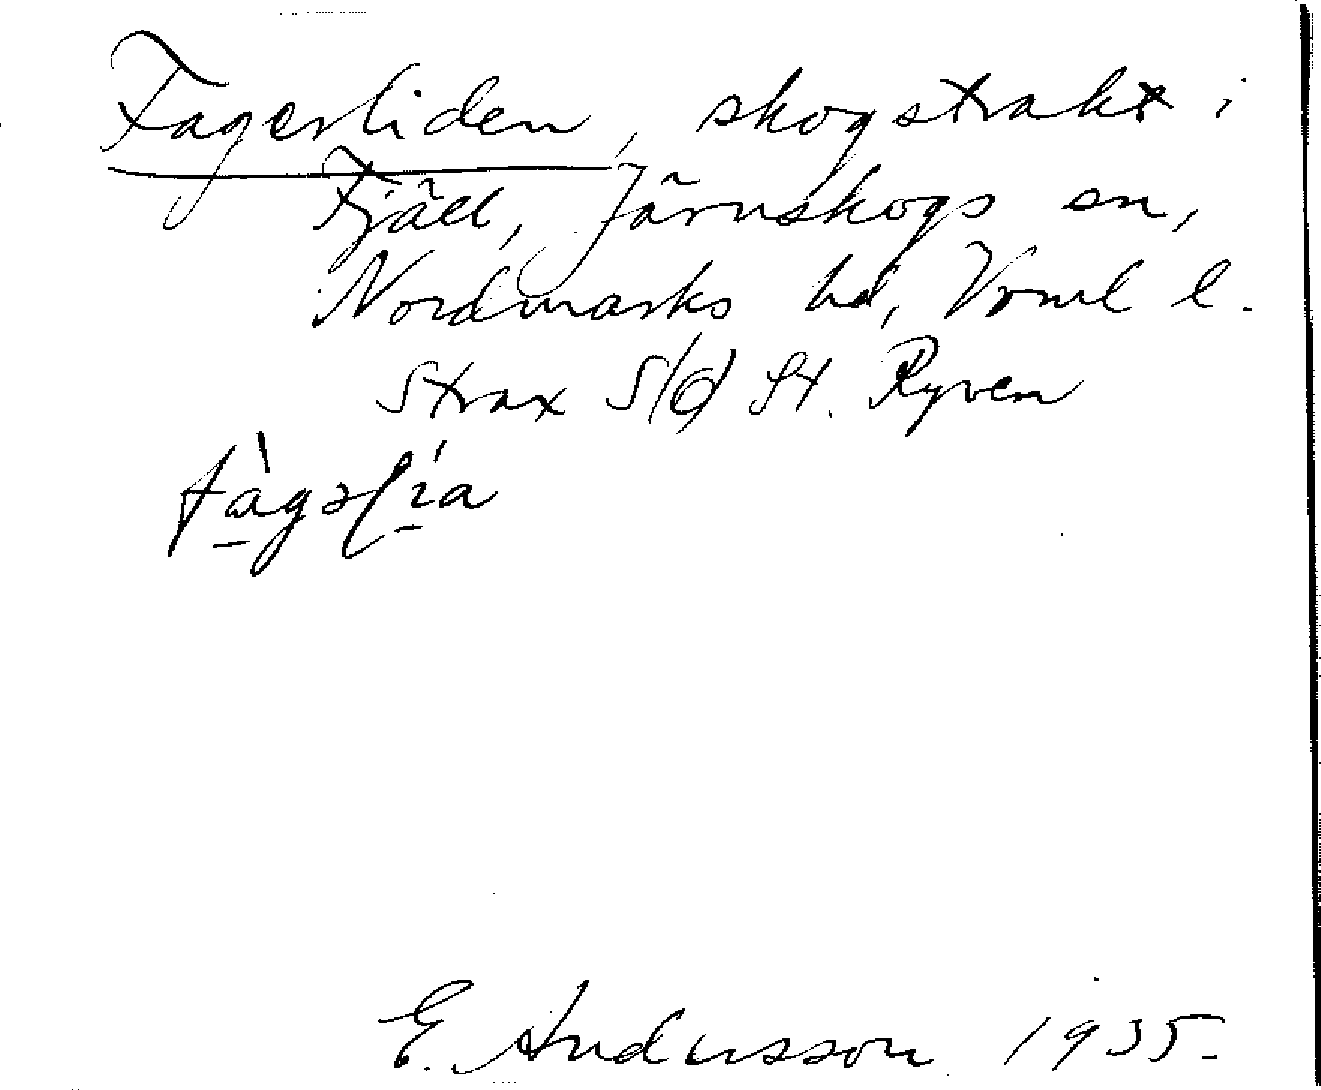 Fagerliden, skogstrakt i
Fjäll, Järnskogs sn,
Nordmarks hd, Vrml l.
Strax S/Ø St. Ryven
fàgəlía
E. Andersson 1935.